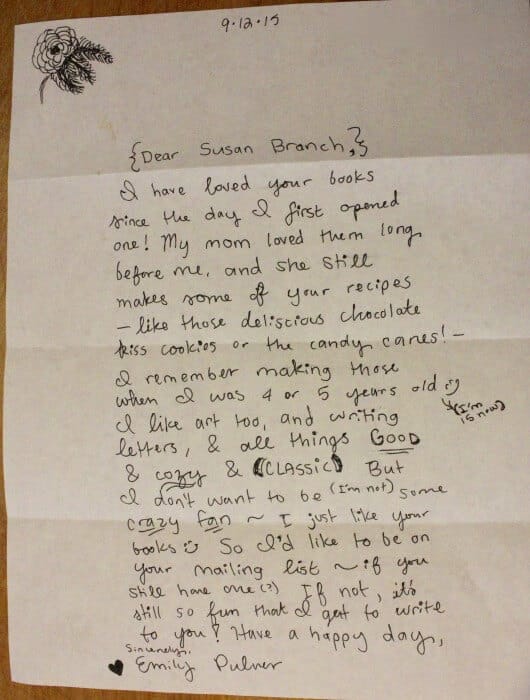 9.12.15
{Dear Susan Branch,}
I have loved your books
since the day I first opened
one! My mom loved them long
before me, and she still
makes some of your recipes
– like those deliscious chocolate
kiss cookies or the candy canes! –
I remember making those
when I was 4 or 5 years old :)
(I'm
15 now)
I like art too, and writing
letters, & all things GOOD
& cozy & (CLASSIC) But
I don't want to be (I'm not) some
crazy fan ~ I just like your
books :) So I'd like to be on
your mailing list ~ if you
still have one (?) If not, it's
still so fun that I get to write
to you! Have a happy day,
Sincerely,
♥ Emily Pulver